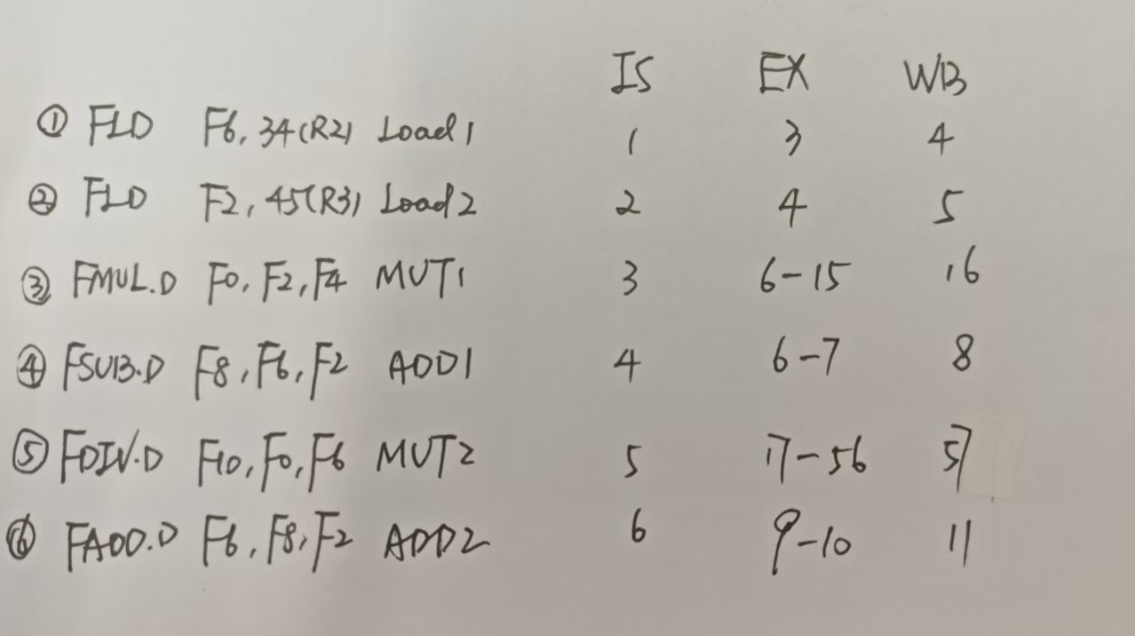 IS EX WB
① FLD F6, 34(R2) Load1 1 3 4
② FLD F2, 45(R3) Load2 2 4 5
③ FMUL.D F0, F2, F4 MUT1 3 6-15 16
④ FSUB.D F8, F6, F2 ADD1 4 6-7 8
⑤ FDIV.D F10, F0, F6 MUT2 5 17-56 57
⑥ FADD.D F6, F8, F2 ADD2 6 9-10 11